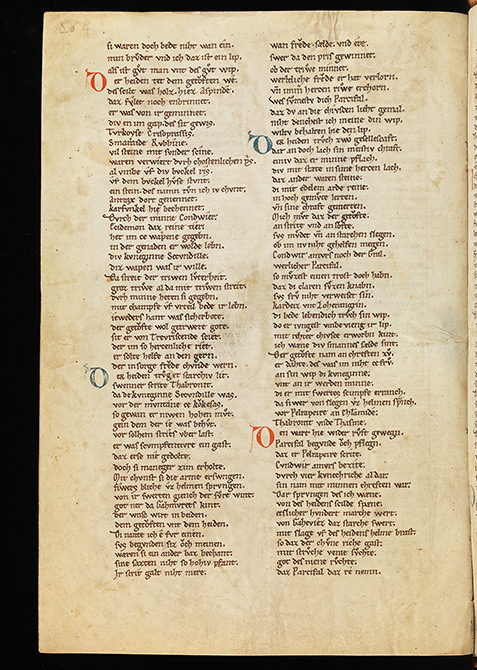 si waren doch bede niht wan ein.
min brůder und ich daz ist ein lip.
als ist gůt man unt des gůt wip.
er heiden tet dem getoͮften we.
des schilt was holz. hiez aspinde.
daz fulet noch enbrinnet.
er was von ir geminnet.
div en im gap. des sit gewis.
Turkoyse Crisoprassis.
Smaraide Rubbine.
vil steine mit sunder scine.
waren verwiert durch chostenlichen pris.
al umbe uf div buckel ris.
uf dem buckel huse stunt.
ein stein. des namn tůn ich iv chunt.
antrax dort genennet.
karfunkel hie bechennet.
Durch der minne condwier.
Ecidemon daz reine tier.
het im ce wapene gegebn.
in der genaden er wolde lebn.
div kuneginne Secundille.
diz wapen was ir wille.
Da streit der triwen luterheit.
groz triwe al da mit triwen streit.
durh minne heten si gegebn.
mit champfe uf urteil bede ir lebn.
ieweders hant was sicherbote.
der getoͮfte wol getruwete gote.
sit er von Trevrizende sciet.
der im so herzenlichen riet.
er solte helfe an den gern.
der in sorge froͮde chunde wern.
er heiden truͦg et starchiv lit.
swenner scrite Thabronit.
da de kunegine Secundille was.
vor der muntane ce Kukasas.
so gewan er niwen hohen můt.
gein dem der ie was behůt.
vor solhem strits uber last.
er was scumpfentiure ein gast.
daz erse nie gedolte.
doch si maneger zim erholte.
Mit chunst si die arme erswungen.
fiwers blicke uz helmen sprungen.
von ir swerten giench der sure wint.
got ner da Gahmurets kint.
der wnsc wirt in beiden.
dem getoͮften unt dem heiden.
Di nante ich e fur einen.
sus begunden siz och meinen.
waren si ein ander baz bechant.
sine sazten niht so hohiv pfant.
Ir strit galt niht mere.
wan froͮde. sælde. und ere.
swer da den pris gewinnet.
ob der triwe minnet.
werltliche froͮde er hat verlorn.
un immer herzen riwe erchorn.
wes sumestu dich Parcifal.
daz du an die chiuscen lieht gemal.
niht denchest ich meine din wip.
wiltu behalten hie den lip.
er heiden truͦch zwo gesellescaft.
dar an doch lach sin meistiv chraft.
einiu daz er minne pflach.
div mit stæte in sine herzen lach.
daz ander waren steine.
di mit edelem arde reine.
in hoch gemute lerten.
un sine chraft gemerten.
Mich muͦt daz der getoͮfte.
an strite und an loͮfte.
sus můdet un an starchen slegen.
ob im nu niht gehelfen megen.
Condwir amurs noch der Gral.
werlicher Parcifal.
so muzest einen trost doch habn.
daz di claren suzen knabn.
sus fru niht verweiset sin.
Kardeiz unt Loherangrin.
di bede lebendich truch sin wip.
do er iungest umbe vienig ir lip.
mit rehter chiusce erworbn kint.
ich wæne div smannes sælde sint.
Der getoͮfte nam an chreften zů.
er dahte. des was im niht ce fru.
an sin wip di kuneginne.
unt an ir werden minne.
di er mit swertes scimpfe errauch.
da fiwer von slegen uz helmen sprach.
vor Pelrapeire an Clamide.
Thabronit unde Thasme.
en wart hie wider růft gewegn.
Parcifal begunde och pflegn.
daz er Pelrapeire scrite.
Cundwir amurs bezite.
durch vier kunechriche al dar.
sin nam mit minnen chreften war.
Dar sprungen des ich wæne.
von des heidens scilde spæne.
etslicher hundert marche wert.
von Gahevier daz starche swert.
mit slage uf des heidens helme brast.
so daz der chune riche gast.
mit struche venie suchte.
got des niene ruchte.
daz Parcifal daz re nemn.